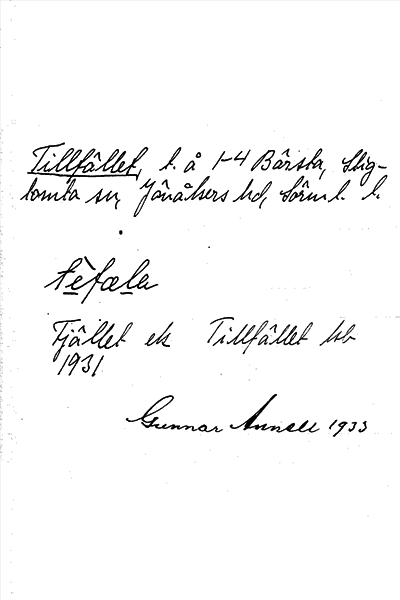 Tillfället, t. å 1-4 Bärsta, Stig-
tomta sn, Jönåkers hd, Sörml. l.
tèfæla
Fjället ek Tillfället hsb
1931
Gunnar Annell 1933